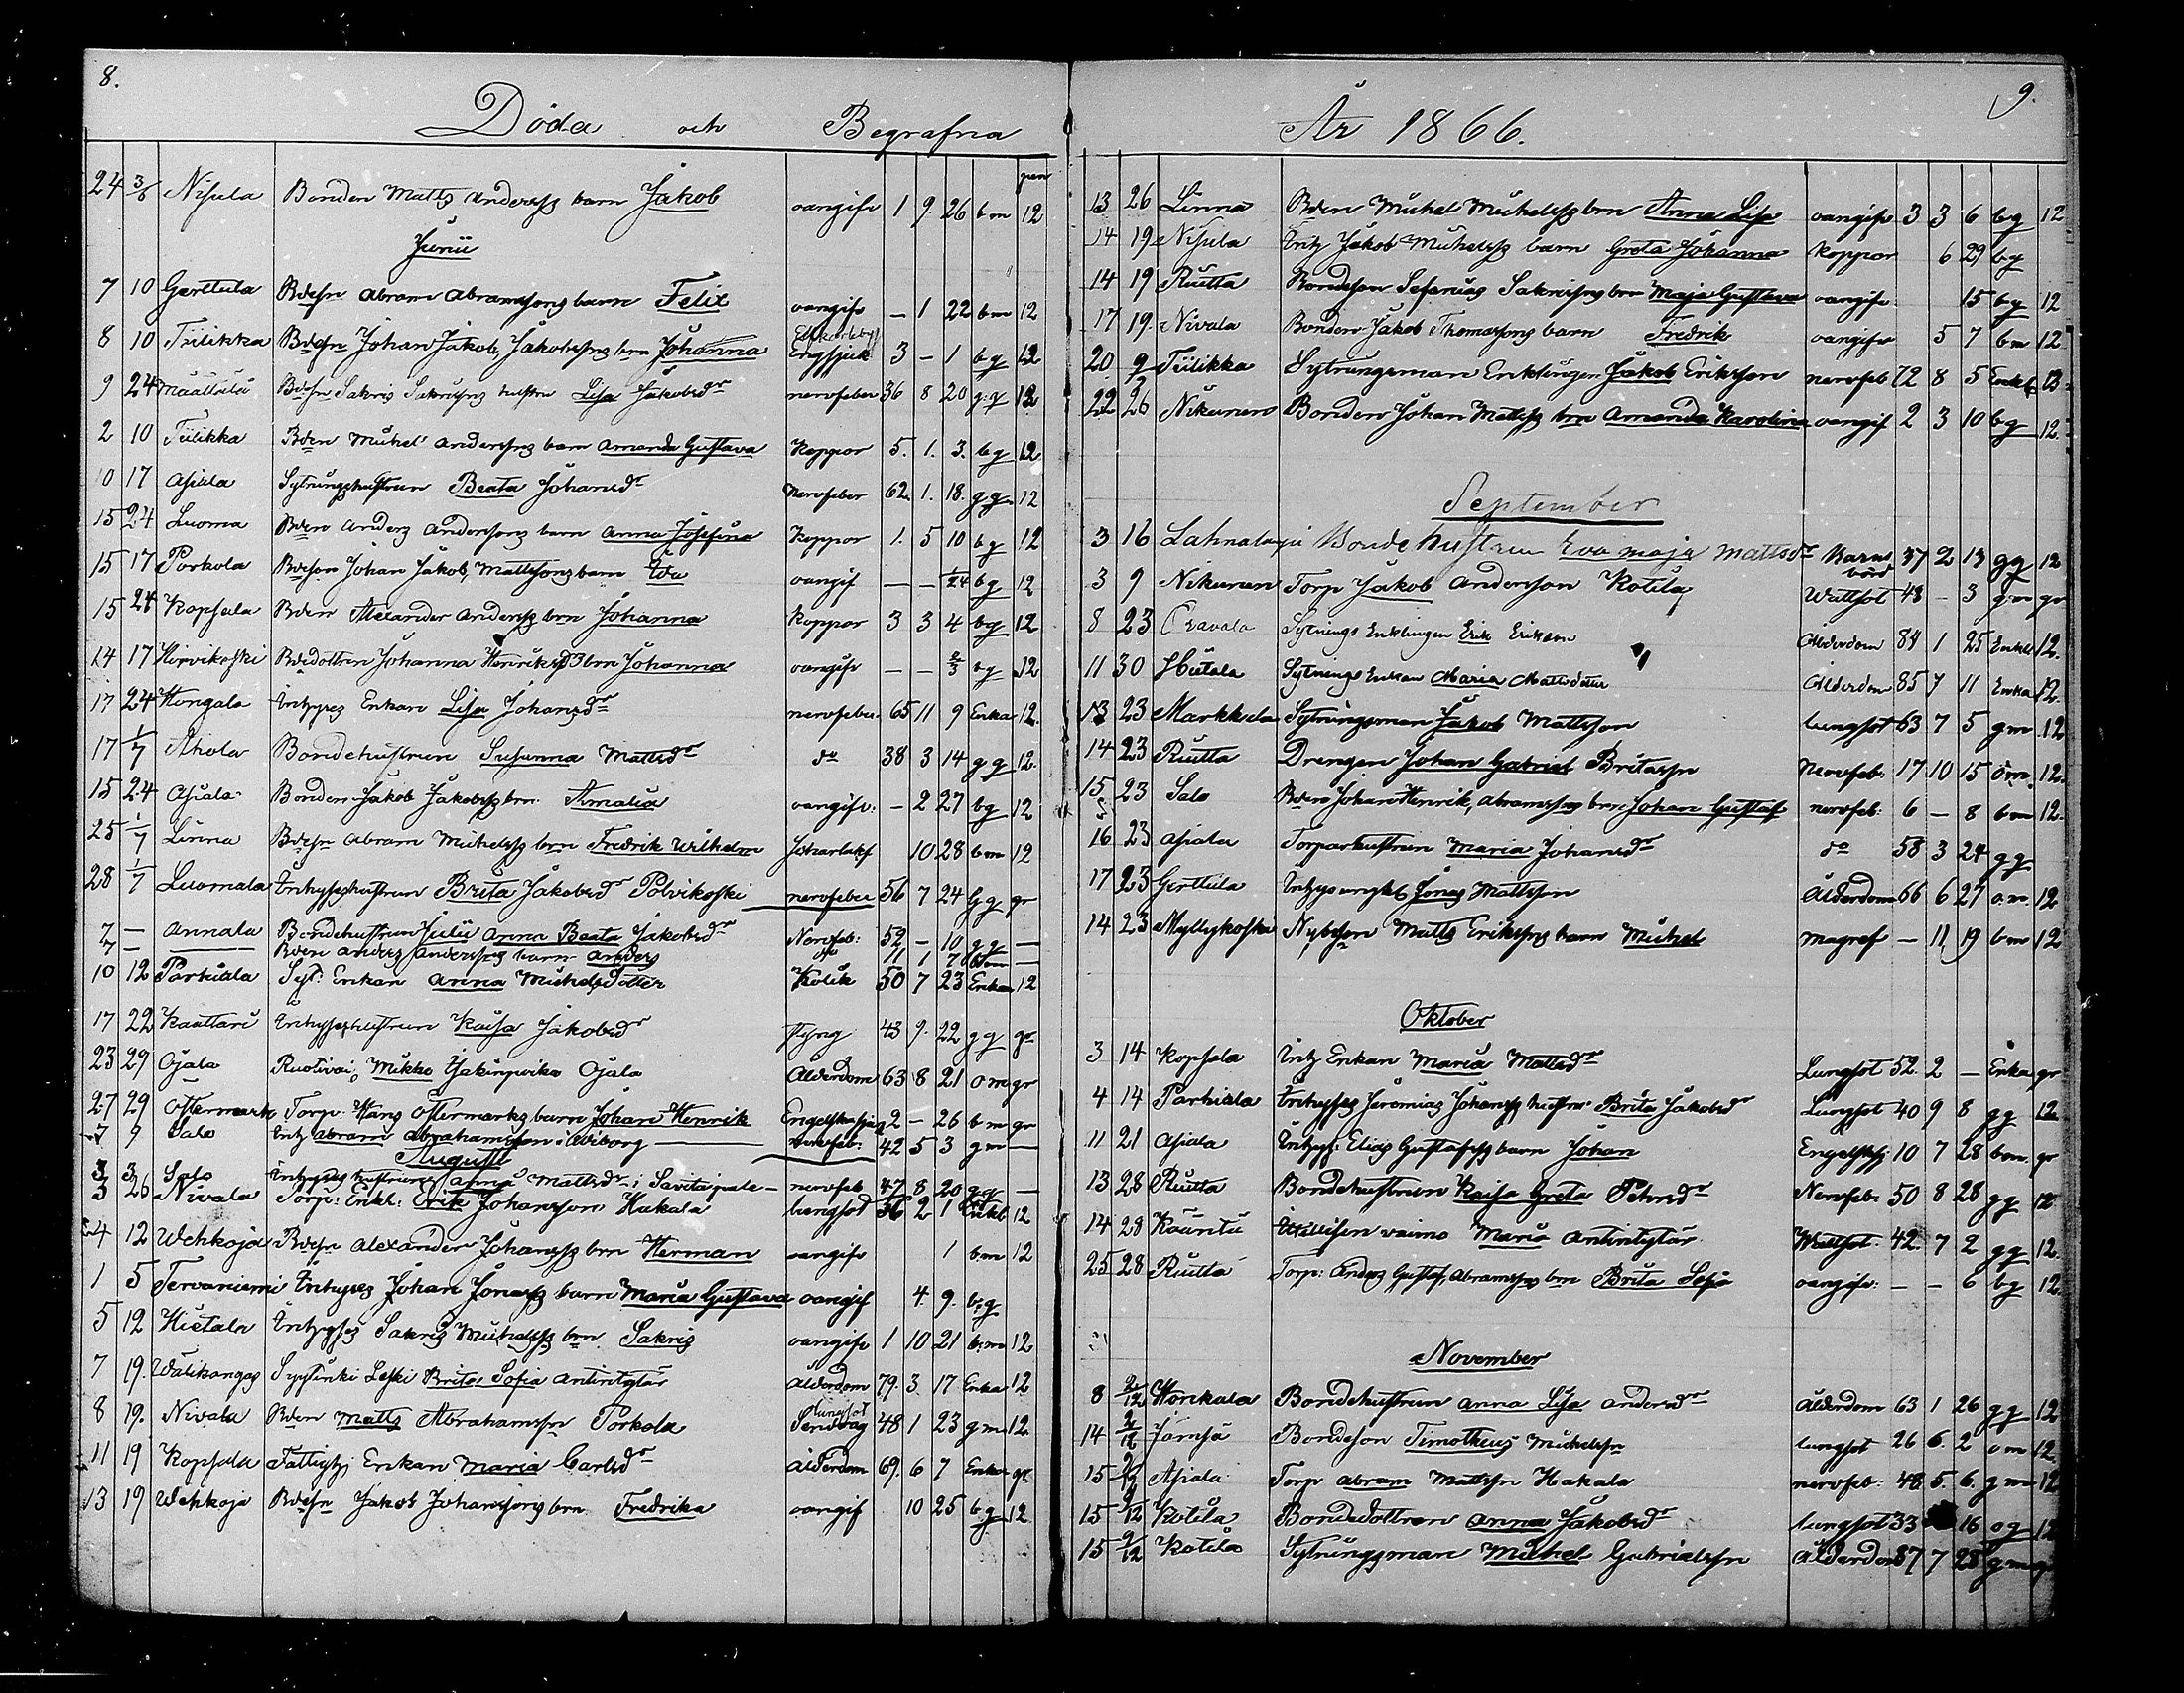 8.
Döda och Begrafna
24 3/6 Nisula Bonden Matts Anderss barn Jakob oangifv 1 9 26 b m 12
Junii
7 10 Gerttula Bdesn Abram Abramssons barn Felix oangifv — 1 22 b m 12
8 10 Tiilikka Bdesn Johan Jakob Jakobssons brn Johanna Engsjuk 3 — 1 b g 12
9 24 Määttälä Bdesn Sakris Sakrisons hustru Lisa Jakobsdr nervfeber 36 8 20 g g 12
2 10 Tiilikka Bden Mickel Anderssons barn Amanda Gustava Koppor 5. 1. 3. b g 12
10 17 Asiala Sytningshustrun Beata Johansdr nervfeber 62. 1. 18. g g 12
15 24 Luoma Bden Anders Anderssons barn Anna Josefina Koppor 1. 5 10 b g 12
15 17 Porkola Bdeson Johan Jakob Mattssons barn Ida oangif — — 1/24 b g 12
15 24 Kopsala Bden Alexander Anderss brn Johanna Koppor 3 3 4 b g 12
14 17 Hirvikoski Bdedottren Johanna Henriksd brn Johanna oangifv — — 2/3 b g 12
17 24 Hongala Inhyses Enkan Lisa Johansdr nervfeber 65 11 9 Enka 12.
17 1/7 Ahola Bondehustrun Susanna Mattsdr do 38 3 14 g g 12.
15 24 Asiala Bonden Jakob Jakobss brn Amalia oangifv: — 2 27 b g 12
25 1/7 Linna Bdesn Abram Mickelss brn Fredrik Wilhelm 10 28 b m 12
28 1/7 Luomala Inhyseshustrun Brita Jakobsdr Polvikoski nervfeber 56 7 24 g g gr
Julii
7 — Annala Bondehustrun Anna Beata Jakobsdr Nervfeb: 52 — 10 g g —
7 — Bden Anders Anderssons barn Anders do 11 1 7 b m —
10 12 Parhiala Syt: Enkan Anna Mickelsdotter Kolik 50 7 23 Enka 12
17 22 Kaattari Inhyseshustrun Kaisa Jakobsdr 43 9. 22 g g gr
23 29 Ojala Ruotivai Mikko Ojala Ålderdom 63 8 21 o m gr
27 29 Östermark Torp: Hans Östermarks barn Johan Henrik Engelskasjuk 2 — 26 b m gr
7 9 Salo Inh Abram Abrahamsson i Wiborg nervfeb: 42 5 3 g m —
Augusti
3 3 Salo Inhyses hustrun Anna Mattsdr i Savitaipale — nervfeb 47 8 20 g g —
3 26 Nivala Torp: Enkl: Erik Johansson Hakala lungsot 36 2 1 Enkl 12
4 12 Wehkoja Bdesn Alexander Johanss brn Herman oangifv 1 b m 12
1 5 Tervaniemi Inhyses Johan Jonass barn Maria Gustava oangif 4. 9. b g
5 12 Hietala Inhyses Sakris Mickelss brn Sakris oangifv 1 10 21 b m 12
7 19. Wälikangas Sysinki Leski Brita Sofia Antintytär Ålderdom 79. 3. 17 Enka 12
8 19. Nivala Bden Matts Abrahamssn Porkola lungsot 48 1 23 g m 12
11 19 Kopsala Fattighj Enkan Maria Carlsdr Ålderdom 69. 6 7 Enka gr
13 19 Wehkoja Bdesn Jakob Johanssons brn Fredrika oangif 10 25 b g 12
9.
År 1866.
13 26 Linna Bden Mickel Mickelss brn Anna Lisa oangifv 3 3 6 b g 12
14 19 Nisula Inh Jakob Mickelss barn Greta Johanna Koppor 6 29 b g
14 19 Riutta Bondeson Sefanias Sakrisons brn Maja Gustava oangifv 15 b g 12
17 19. Nivala Bonden Jakob Thomassons barn Fredrik oangifv 5 7 b m 12
20 9 Tiilikka Sytningsman Enklingen Jakob Eriksson nervfeb 72 8 5 Enkl 12
22 26 Nikunen Bonden Johan Mattss brn Amanda Karolina oangif 2 3 10 b g 12.
September
3 16 Bondehustrun Eva Maja Mattsdr Barnsbörd 37 2 13 g g 12
3 9 Nikunen Torp Jakob Andersson Kotila Wattsot 48 — 3 g m gr
8 23 Oravala Sytnings Enklingen Erik Eriksson Ålderdom 84 1 25 Enkl 12.
11 30 Hietala Sytnings Enkan Maria Mattsdotter Ålderdom 85 7 11 Enka 12.
13 23 Markkula Sytningsman Jakob Mattsson lungsot 63 7 5 g m 12
14 23 Riutta Drengen Johan Gabriel Britassn Nervfeb: 17 10 15 o m 12.
15 23 Salo Bden Johan Henrik Abramssons brn Johan Gustaf nervfeb: 6 — 8 b m 12.
16 23 Asiala Torparhustrun Maria Johansdr do 58 3 24 g g
17 23 Gerttula Inhys ungkl Jonas Mattsson Ålderdom 66 6 27 o. m. 12
14 23 Myllykoski Nybdsn Matts Erikssons barn Mickel magref — 11 19 b m 12
Oktober
3 14 Kopsala Inh Enkan Maria Mattsdr Lungsot 52. 2 — Enka gr
4 14 Parhiala Inhyses Jeremias Johanss hustru Brita Jakobsdr Lungsot 40 9 8 g g 12
11 21 Asiala Inhys: Elias Gustafss barn Johan Engelsksj: 10 7 28 b m. gr
13 28 Riutta Bondehustrun Kaisa Greta Petersdr Nervfeb: 50 8 28 g g 12
14 28 Itsellisen vaimo Maria Antintytär Wattsot 42. 7 2 g g 12.
25 28 Riutta Torp: Anders Gustaf Abramssons brn Brita Sofia oangifv: — — 6 b g 12.
November
8 2/12 Honkala Bondehustrun Anna Lisa Andersdr Ålderdom 63 1 26 g g 12
14 2/12 Jämsä Bondeson Timotheus Mickelssn lungsot 26 6. 2 o m 12
15 2/12 Asiala Torp Abram Mattssn Hakala nervfeb: 48 5. 6. g m 12
15 2/12 Kotila Bondedottren Anna Jakobsdr lungsot 33 16 o g 12
15 2/12 Kotila Sytningsman Mickel Gabrielssn Ålderdom 87 7 28 g m gr